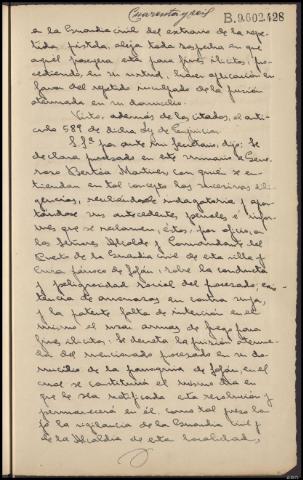 Cuarenta y seis
B.9.602.428
a la Guardia civil del extravio de la repe-
tida pistola, aleja toda sospecha en que
aquel poseyera esta para fines ilícitos, pro-
cediendo, en su virtud, hacer aplicación en
favor del repetido inculpado de la prisión
atenuada en su domicilio.
Visto, además de los citados, el artí-
culo 589 de dicha Ley de Enjuiciar.
S.Sª por ante mi Secretario, dijo: Se
declara procesado en este sumario a Gene-
roso Bertéa Martinez con quien se en-
tiendan en tal concepto las sucesivas dili-
gencias, recibiéndosele indagatoria y apor-
tándose sus antecedentes penales e infor-
mes que se reclamen, éstos, por oficio, a
los Señores Alcalde y Comandante del
Puesto de la Guardia civil de esta villa y
Cura párroco de Jofán, sobre la conducta
y peligrosidad social del procesado, exis-
tencia de amenazas en contra suya,
y la patente falta de intención en el
mismo de usar armas de fuego para
fines ilícitos. Se decreta la prisión atenua-
da del mencionado procesado en su do-
micilio de la parroquia de Jofán, en el
cual se constituirá el mismo día en
que le sea notificada esta resolución y
permanecerá en él como tal preso ba-
jo la vigilancia de la Guardia civil y
de la Alcaldía de esta localidad,